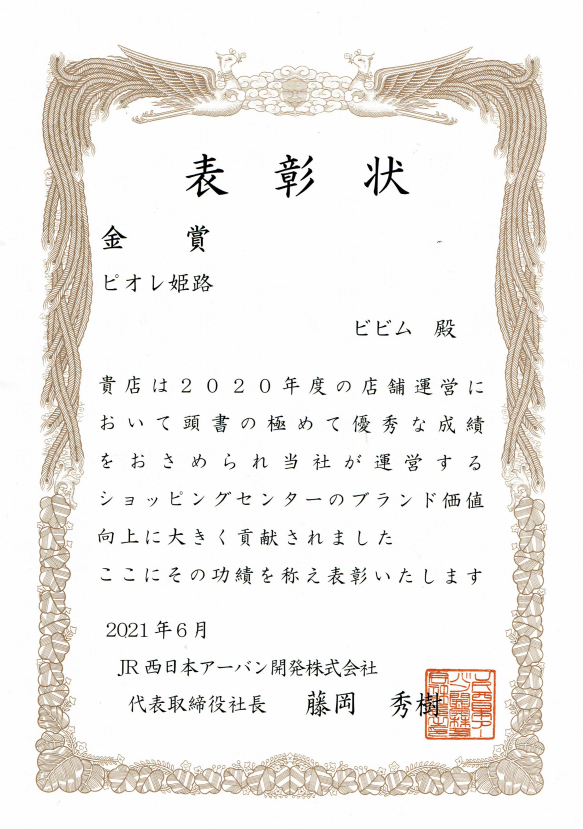 表彰状
金賞
ピオレ姫路
ビビム 殿
貴店は２０２０年度の店舗運営に
おいて頭書の極めて優秀な成績
をおさめられ当社が運営する
ショッピングセンターのブランド価値
向上に大きく貢献されました
ここにその功績を称え表彰いたします
2021年6月
JR西日本アーバン開発株式会社
代表取締役社長 藤岡 秀樹